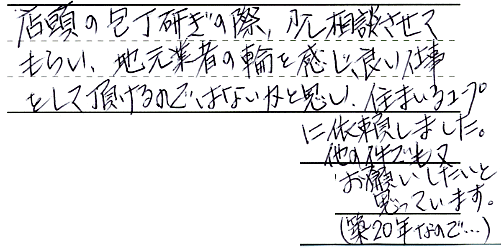 店頭の包丁研ぎの際、少し相談させて
もらい、地元業者の輪を感じ、良い仕事
をして頂けるのではないかと思い、住まいるユプ
に依頼しました。
他の件でも又
お願いしたいと
思っています。
(築20年なので…)